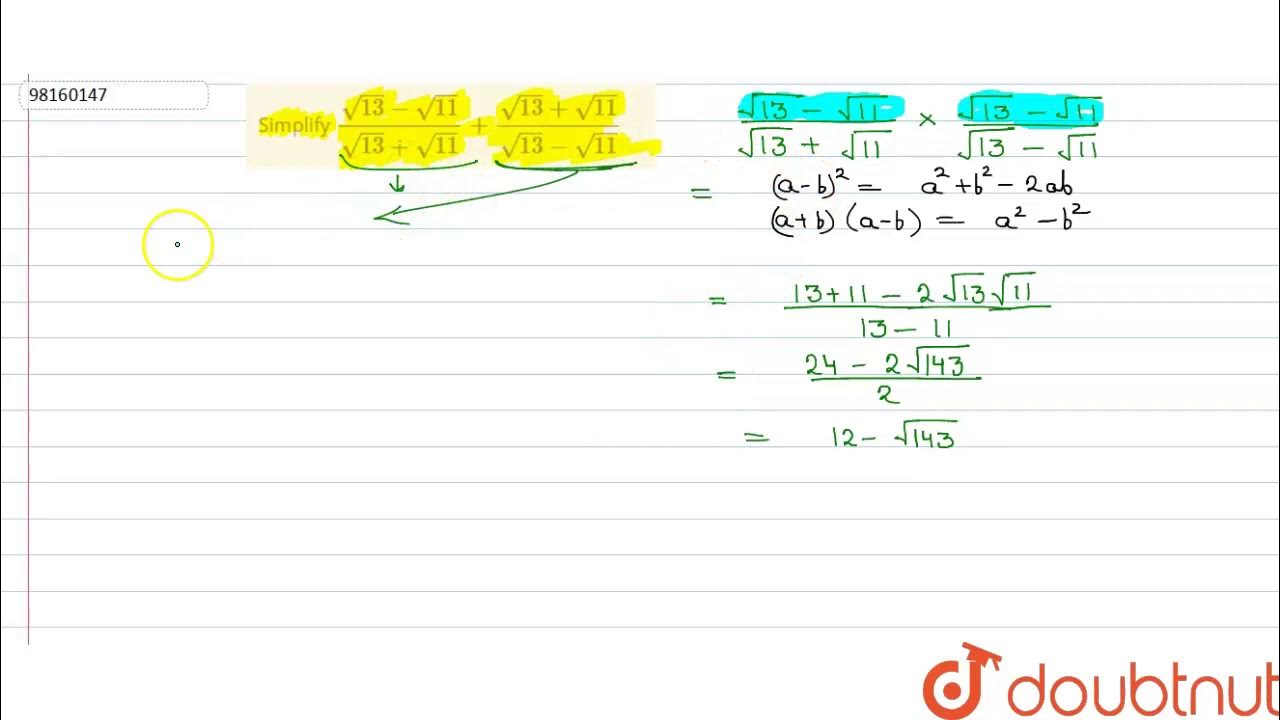 98160147
Simplify (√13 − √11)/(√13 + √11) + (√13 + √11)/(√13 − √11)
(√13 − √11)/(√13 + √11) × (√13 − √11)/(√13 − √11)
= (a-b)² = a² + b² − 2ab
(a+b) (a-b) = a² − b²
= (13+11 − 2√13√11)/(13 − 11)
= (24 − 2√143)/2
= 12 − √143
doubtnut